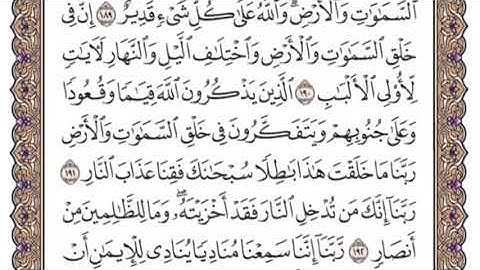 ٱلسَّمَـٰوَٰتِ وَٱلْأَرْضِ ۗ وَٱللَّهُ عَلَىٰ كُلِّ شَىْءٍ قَدِيرٌ ١٨٩ إِنَّ فِى
خَلْقِ ٱلسَّمَـٰوَٰتِ وَٱلْأَرْضِ وَٱخْتِلَـٰفِ ٱلَّيْلِ وَٱلنَّهَارِ لَـَٔايَـٰتٍ
لِّأُو۟لِى ٱلْأَلْبَـٰبِ ١٩٠ ٱلَّذِينَ يَذْكُرُونَ ٱللَّهَ قِيَـٰمًا وَقُعُودًا
وَعَلَىٰ جُنُوبِهِمْ وَيَتَفَكَّرُونَ فِى خَلْقِ ٱلسَّمَـٰوَٰتِ وَٱلْأَرْضِ
رَبَّنَا مَا خَلَقْتَ هَـٰذَا بَـٰطِلًا سُبْحَـٰنَكَ فَقِنَا عَذَابَ ٱلنَّارِ ١٩١
رَبَّنَآ إِنَّكَ مَن تُدْخِلِ ٱلنَّارَ فَقَدْ أَخْزَيْتَهُۥ ۖ وَمَا لِلظَّـٰلِمِينَ مِنْ
أَنصَارٍ ١٩٢ رَّبَّنَآ إِنَّنَا سَمِعْنَا مُنَادِيًا يُنَادِى لِلْإِيمَـٰنِ أَنْ